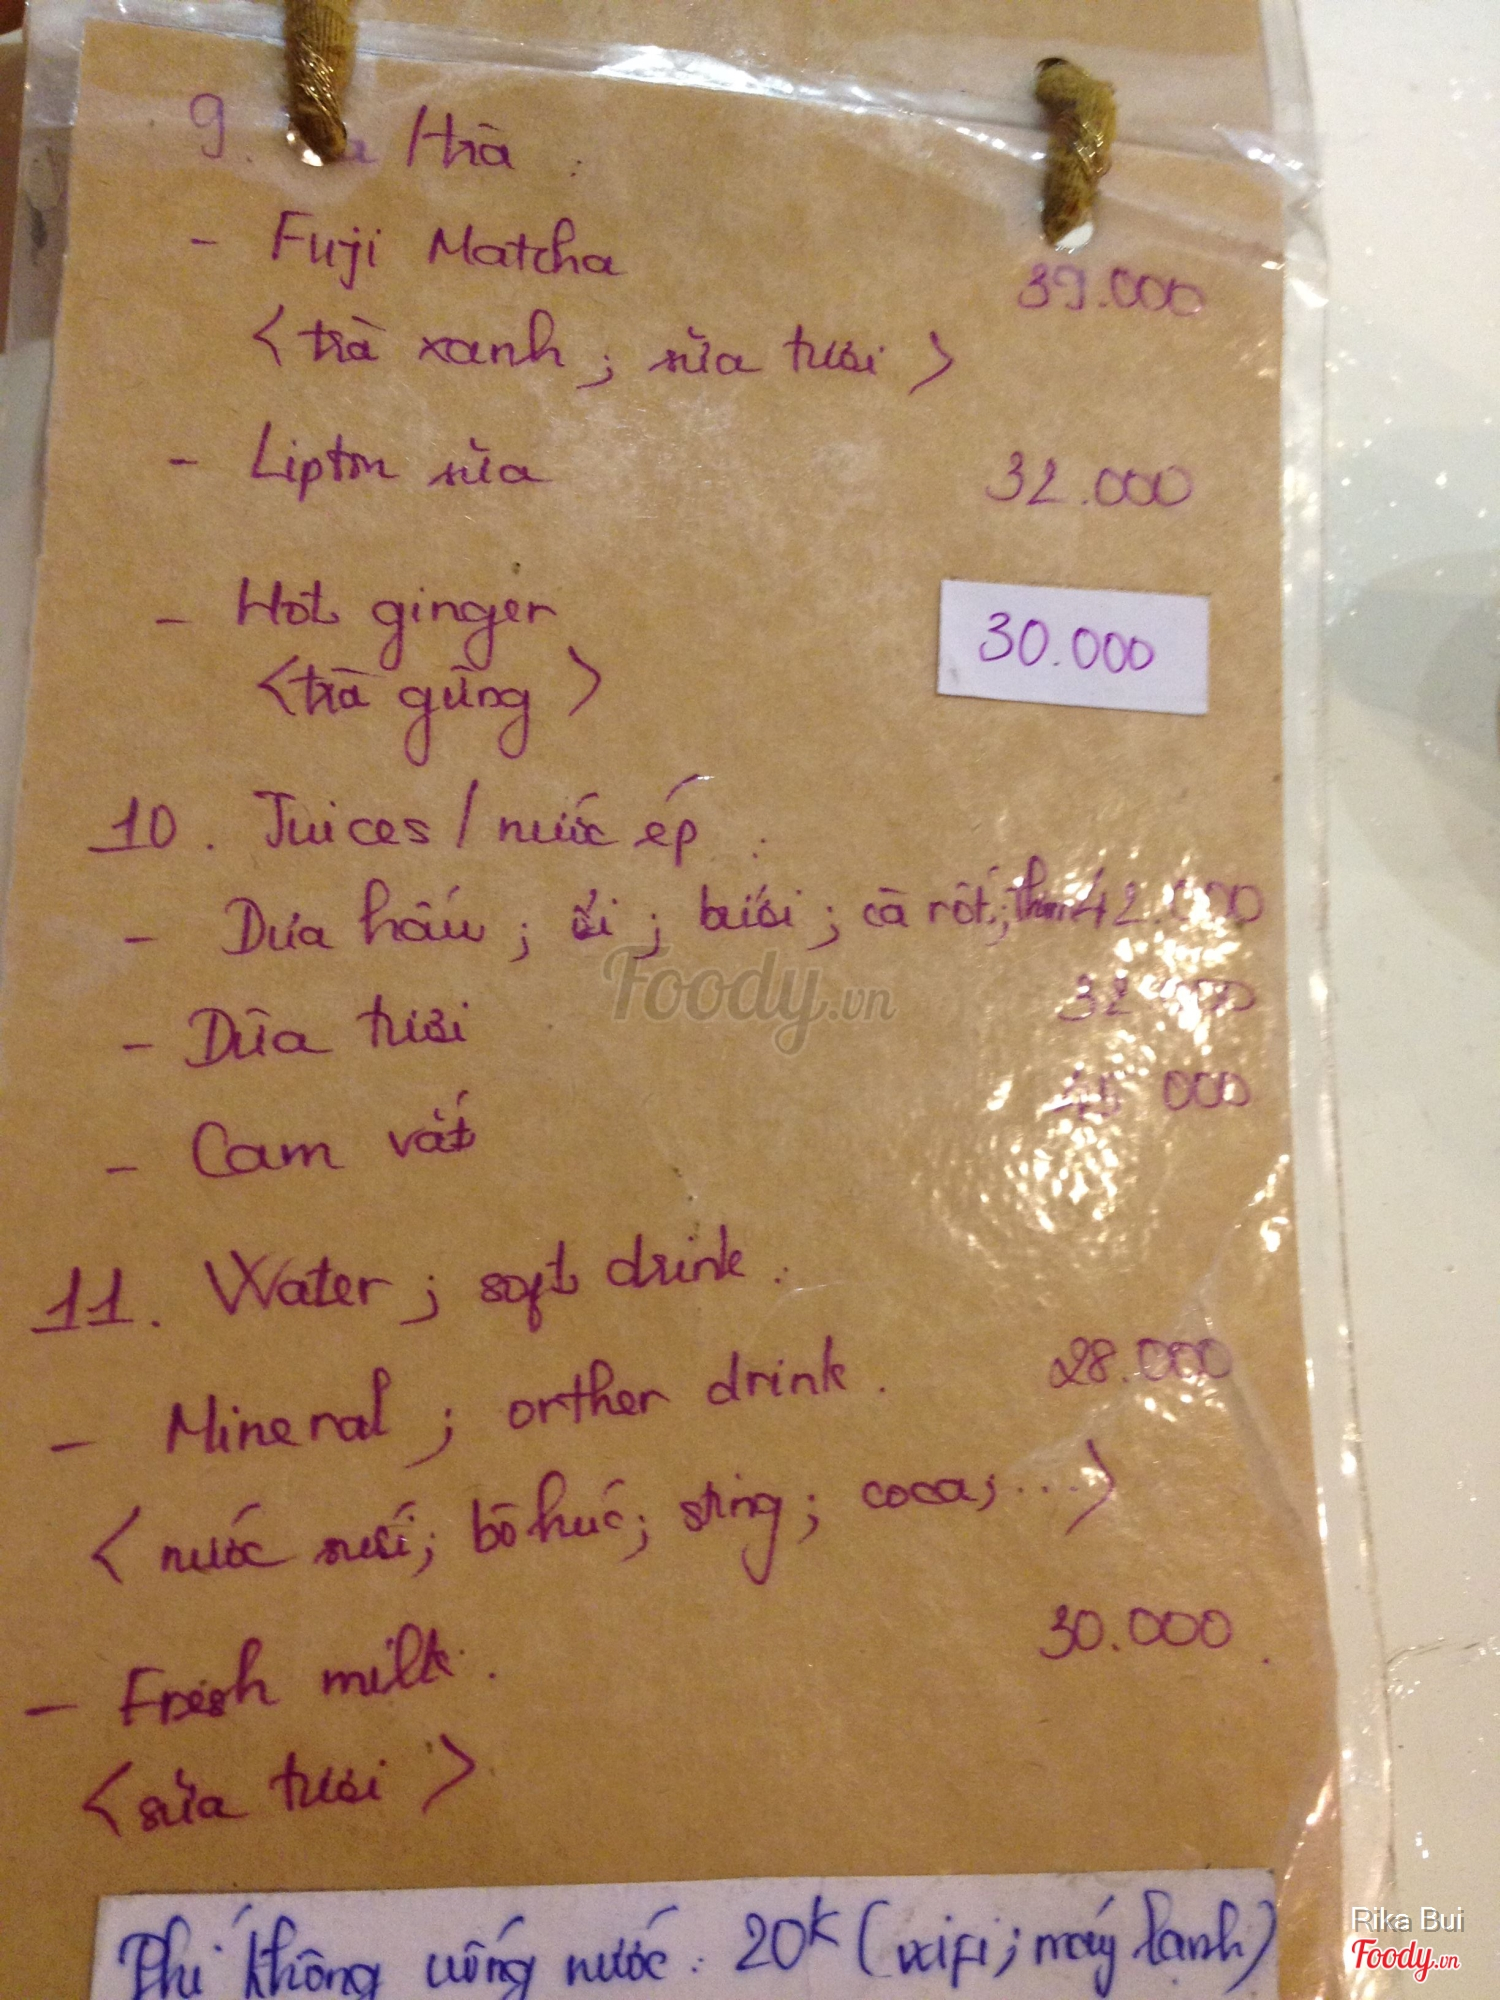 9. /trà :
- Fuji Matcha 39.000
<trà xanh ; sữa tươi>
- Lipton sữa 32.000
- Hot ginger 30.000
<trà gừng>
10. Juices / nước ép :
- Dưa hấu ; ổi ; bưởi ; cà rốt ; thơm 42.000
- Dừa tươi
- Cam vắt
11. Water ; soft drink :
- Mineral ; orther drink . 28.000
<nước suối ; bò húc ; sting ; coca ; ...>
- Fresh milk . 30.000 .
<sữa tươi>
Phí không uống nước : 20k (wifi ; máy lạnh)
Foody.vn
Rika Bui
Foody.vn